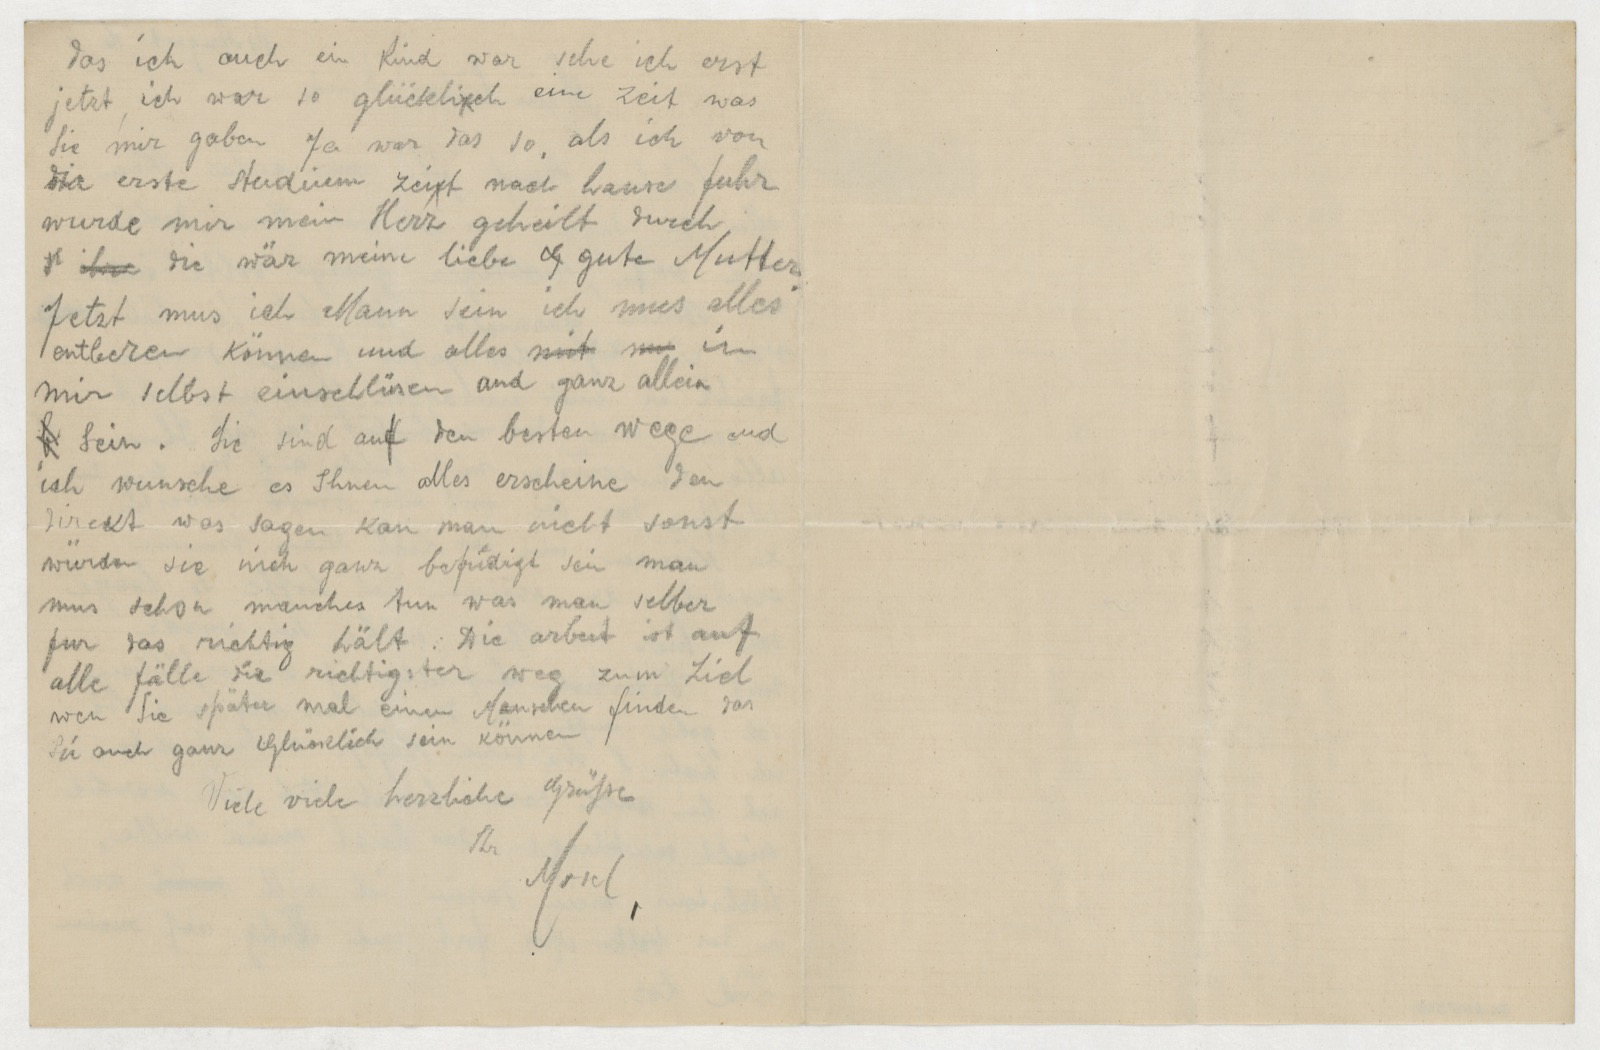 das ich auch ein Kind war sehe ich erst
jetzt, ich war so glücklich eine Zeit was
Sie mir gaben Ja war das so, als ich von
die erste Studiuem zeit nach hause fuhr
wurde mir mein Herz geheilt durch
die wär meine liebe & gute Mutter.
Jetzt mus ich Mann sein ich mus alles
entberen können und alles mit in
mir selbst einschlüsen und ganz allein
sein. Sie sind auf den besten wege und
ich wunsche es Ihnen alles erscheine den
direkt was sagen kan man nicht sonst
würden sie nich ganz befridigt sein man
mus schon manches tun was man selber
fur das richtig hält. Die arbeit ist auf
alle fälle die richtigster weg zum Ziel
wen Sie später mal einen Menschen finden das
Sie auch ganz Glücklich sein können
Viele viele herzliche Grüsse
Ihr